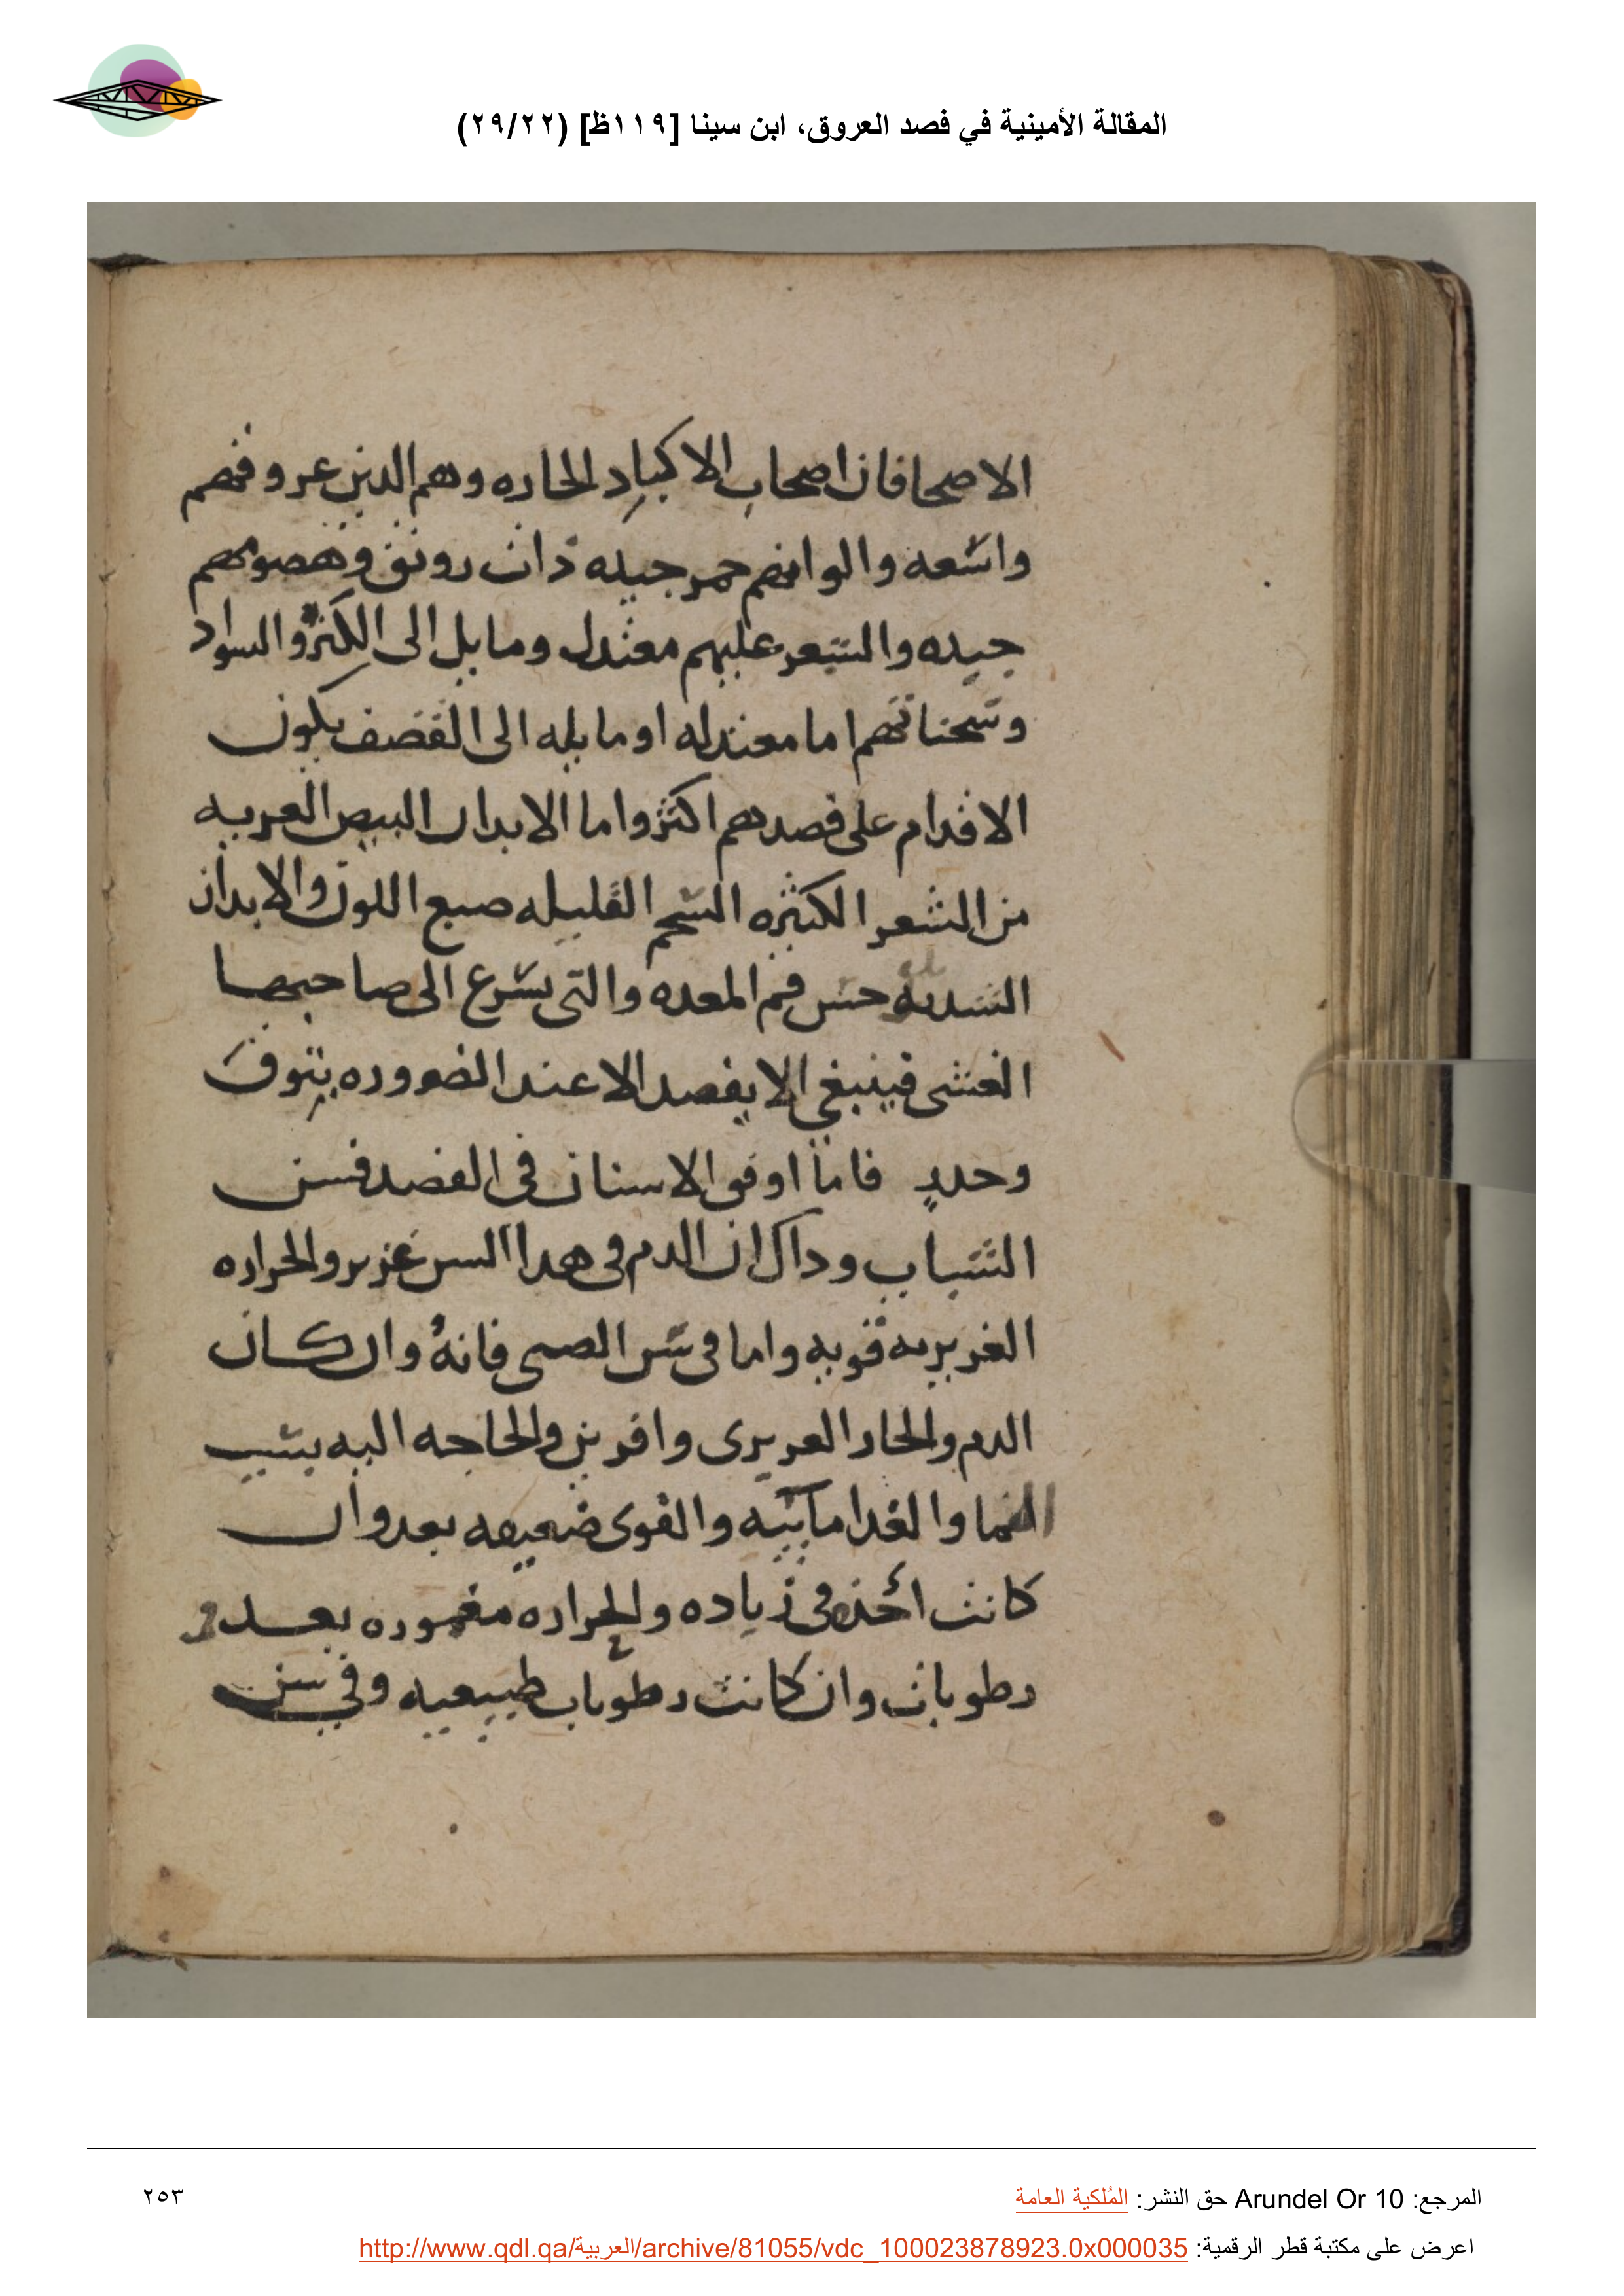 المقالة الأمينية في فصد العروق، ابن سينا [١١٩ظ] (٢٩/٢٢)
الاصحا فان اصحاب الاكباد الحاره وهم الدين عروقهم
واسعه والوانهم حمر جيده ذات رونق وهضومهم
جيده والشعر عليهم معتدل ومايل الى الكثره والسواد
وسحناتهم اما معتدله او مايله الى القضف يكون
الاقدام على فصدهم اكثر واما الابدان البيض العريه
من الشعر الكثيره الشحم القليله صبع اللون والابدان
حس فم المعده والتي يسرع الى صاحبها
الغشى فينبغي الا يفصد الا عند الضروره بتوق
وحدر فاما اوفق الاسنان في الفصد فسن
الشباب وداك ان الدم في هدا السن غزير والحراره
الغريزيه قويه واما في سن الصبى فانه وان كان
الدم والحار العريرى وافرين والحاجه اليه بسبب
النما والغدا ماسه والقوى ضعيفه بعد وان
كانت اخذه في زياده والحراره مغموره بعد في
رطوبات وان كانت رطوبات طبيعيه وفي سن
المرجع: Arundel Or 10 حق النشر: المُلكية العامة
٢٥٣
اعرض على مكتبة قطر الرقمية: http://www.qdl.qa/العربية/archive/81055/vdc_100023878923.0x000035